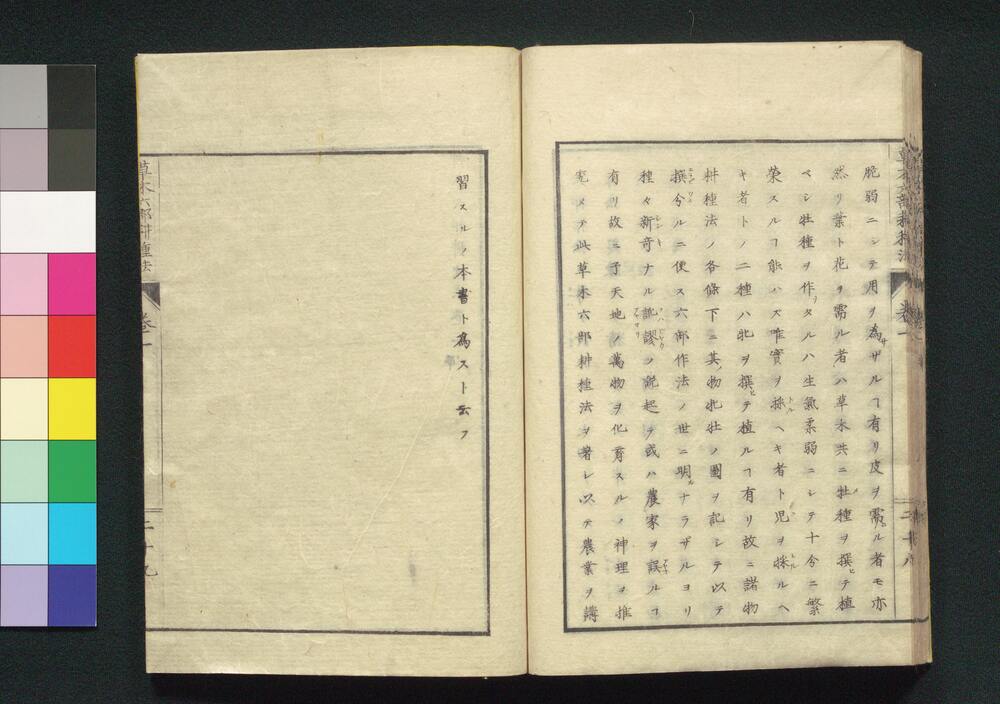 脆弱ニシテ用ヲ為サザルヿ有リ皮ヲ需ル者モ亦
然リ葉ト花ヲ需ル者ハ草木共ニ牡種ヲ撰テ植
ベシ牡種ヲ作タルハ生氣柔弱ニシテ十分ニ繁
榮スルヿ能ハズ唯實ヲ採ヘキ者ト児ヲ採ルヘ
キ者トノ二種ハ牝ヲ撰テ植ルヿ有リ故ニ諸物
耕種法ノ各條下ニ其物牝牡ノ圖ヲ記シテ以テ
撰分ルニ便ス六部作法ノ世ニ明ナラザルヨリ
種々新奇ナル訛謬ノ説起テ或ハ農家ヲ誤ルヿ
有リ故ニ予天地ノ萬物ヲ化育スルノ神理ヲ推
究メテ此草木六部耕種法ヲ著シ以テ農業ヲ講
習スルノ本書ト為スト云フ
草木六部耕種法
卷一
二十八
草木六部耕種法
卷一
二十九